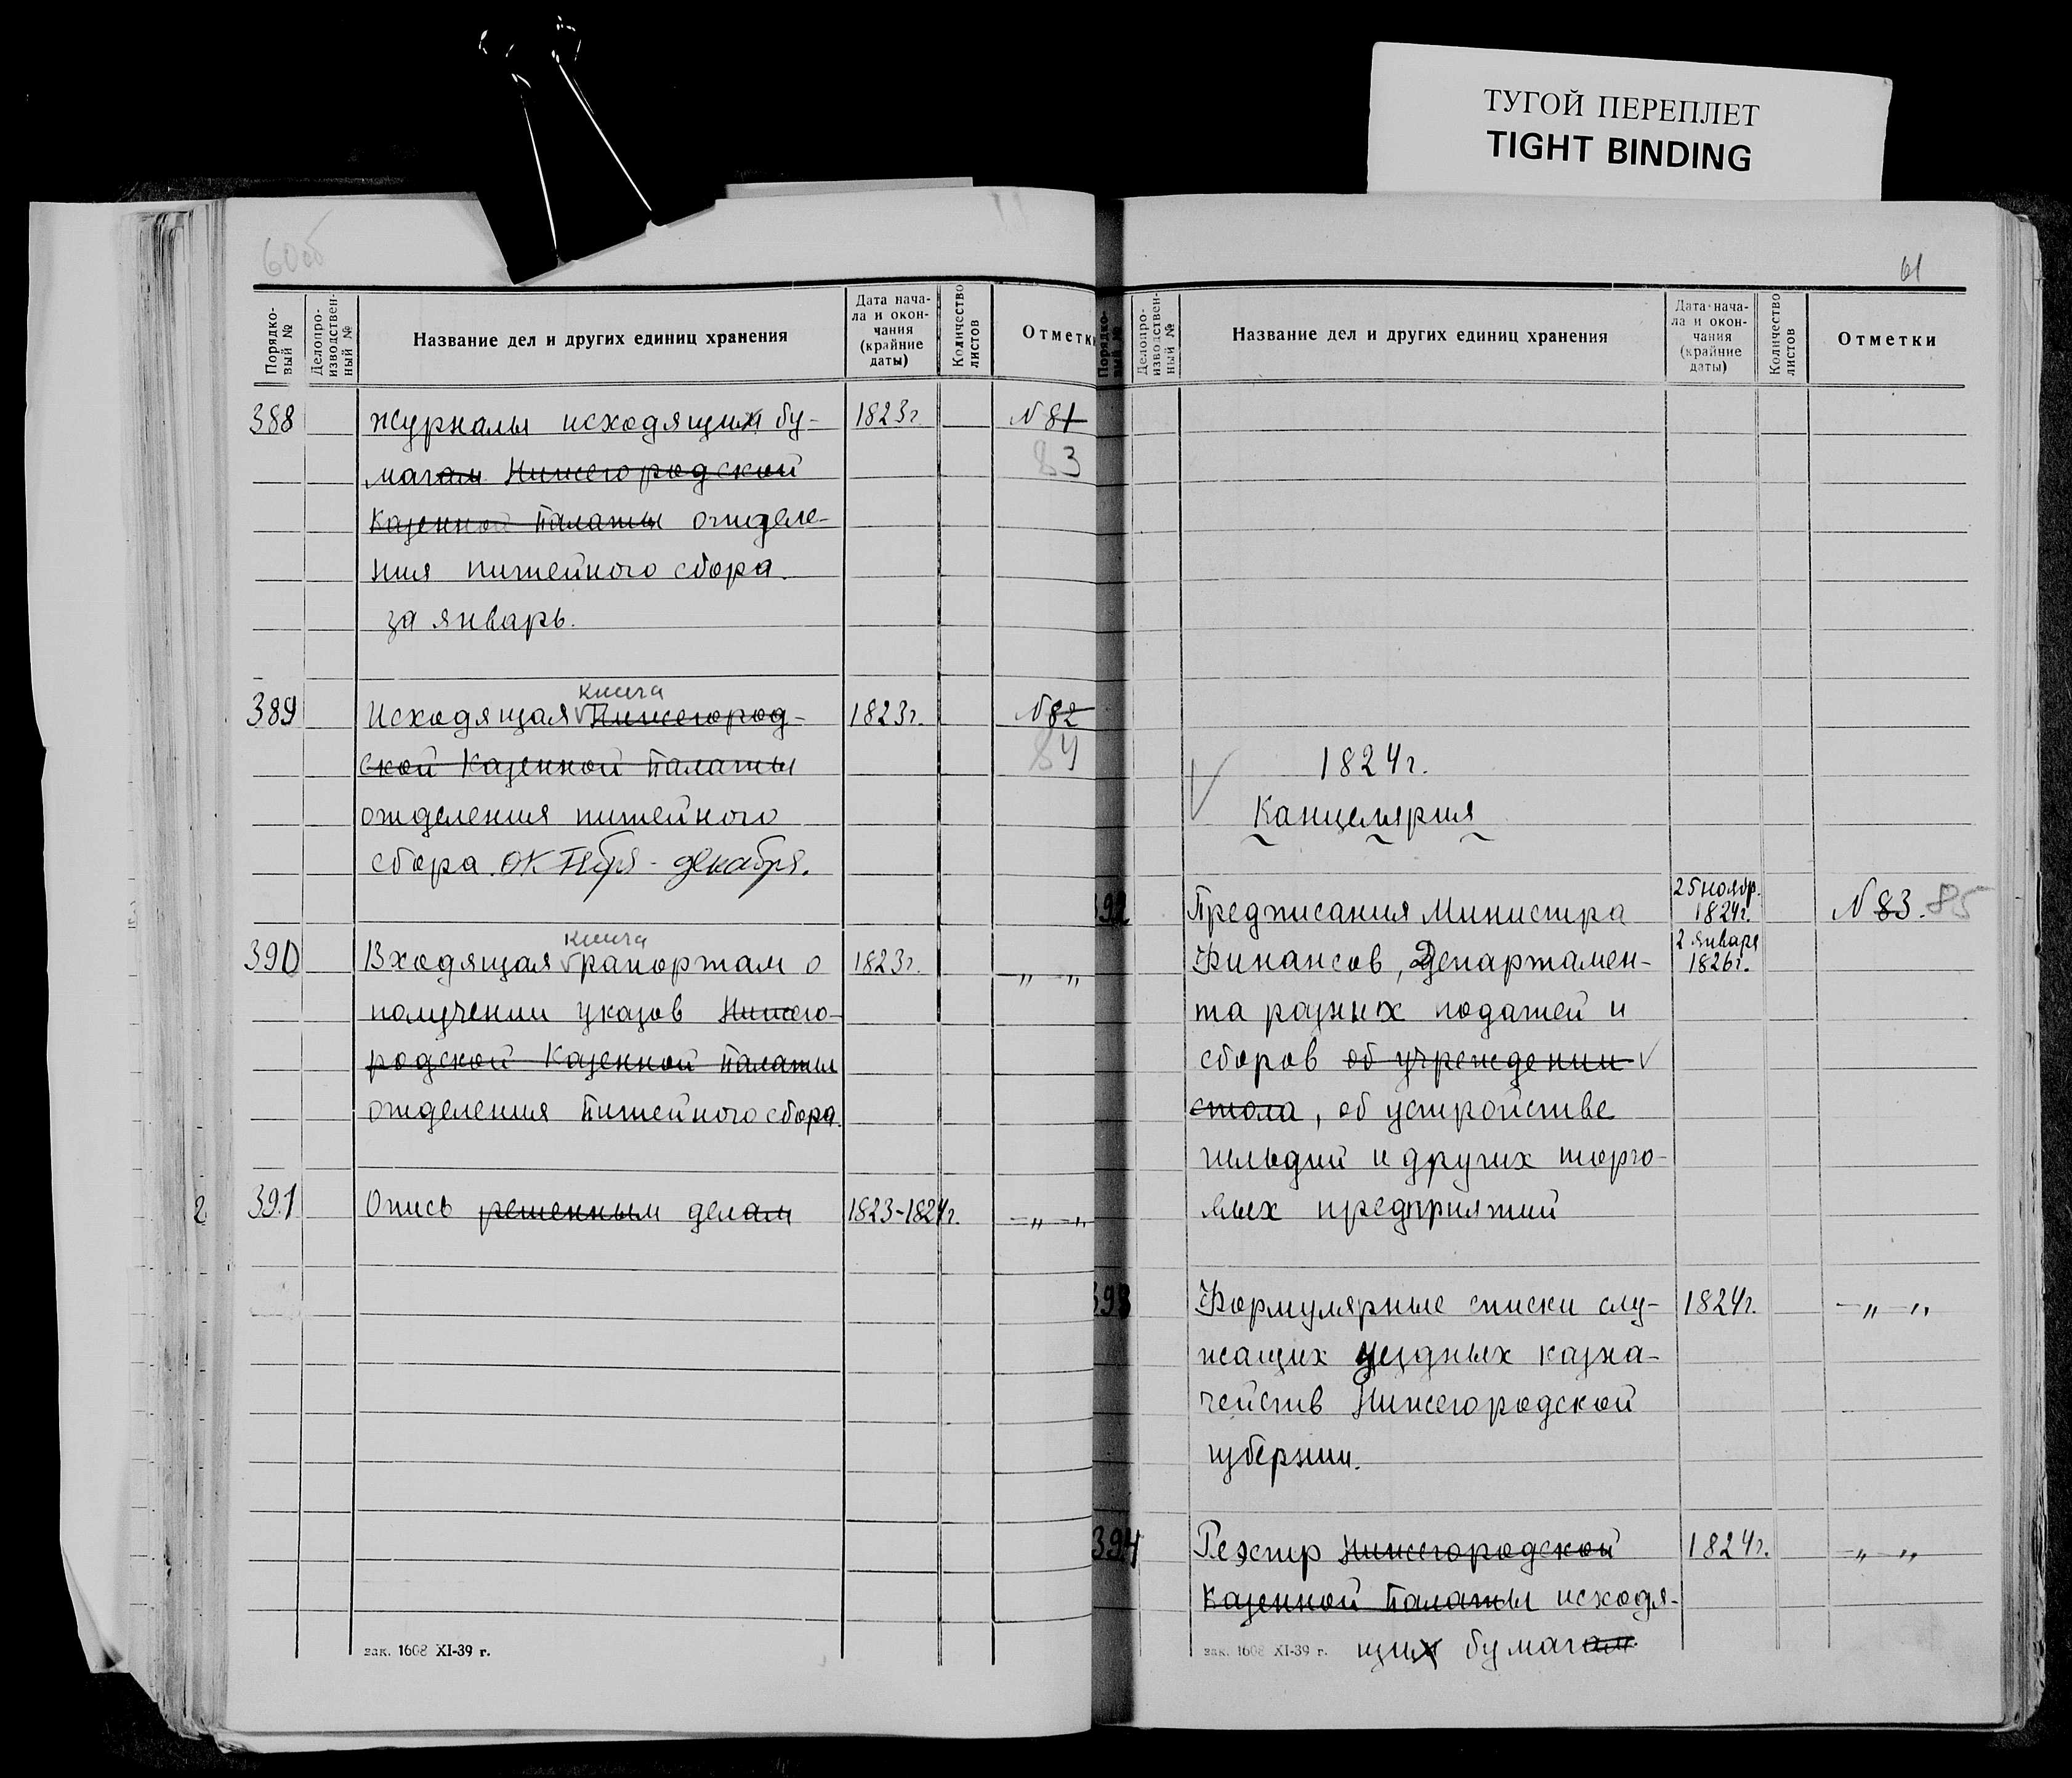 ТУГОЙ ПЕРЕПЛЕТ
TIGHT BINDING
60об
Порядко-
вый №
Делопро-
изводствен-
ный №
Название дел и других единиц хранения
Дата нача-
ла и окон-
чания
(крайние
даты)
Количество
листов
Отметки
388 Журналы исходящих бу- 1823г N 81
магам Нижегородской 83
Казенной Палаты отделе-
ния питейного сбора.
за январь.
книга
389 Исходящая Нижегород- 1823г. N 82
ской Казенной Палаты 84
отделения питейного
сбора октября - декабря.
книга
390 Входящая рапортам о 1823г. „ „
получении указов Нижего-
родской Казенной Палаты
отделения Питейного сбора.
391 Опись решенным делам 1823-1824г. „ „
зак. 1608 XI-39 г.
61
Порядко-
вый №
Делопро-
изводствен-
ный №
Название дел и других единиц хранения
Дата нача-
ла и окон-
чания
(крайние
даты)
Количество
листов
Отметки
1824г.
Канцелярия
25 ноябр.
392 Предписания Министра 1824г. N 83. 85
2 января
Финансов, Департамен- 1826г.
та разных податей и
сборов об учреждении
стола, об устройстве
гильдий и других торго-
вых предприятий
393 Формулярные списки слу- 1824г. „ „
жащих уездных казна-
чейств Нижегородской
губернии.
394 Реэстр Нижегородской 1824г. „ „
Казенной Палаты исходя-
щих бумагам
зак. 1608 XI-39 г.